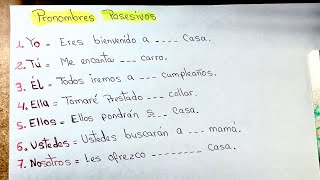 Pronombres Posesivos
1. Yo - Eres bienvenido a ___ Casa.
2. Tú - Me encanta ___ carro.
3. Él - Todos iremos a ___ cumpleaños.
4. Ella - Tomaré Prestado ___ collar.
5. Ellos - Ellos pondrán S... Casa.
6. Ustedes - Ustedes buscarán a ___ mamá.
7. Nosotros - Les ofrezco ________ Casa.